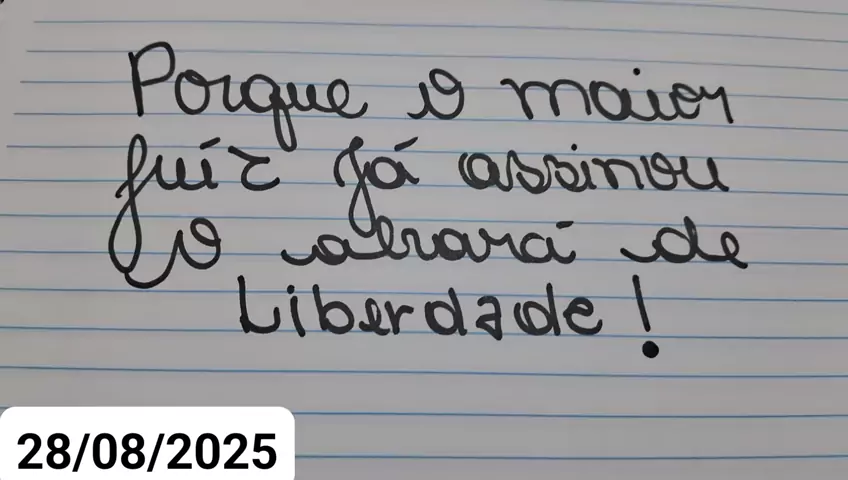 Porque o maior
juíz já assinou
o alvará de
Liberdade!
28/08/2025